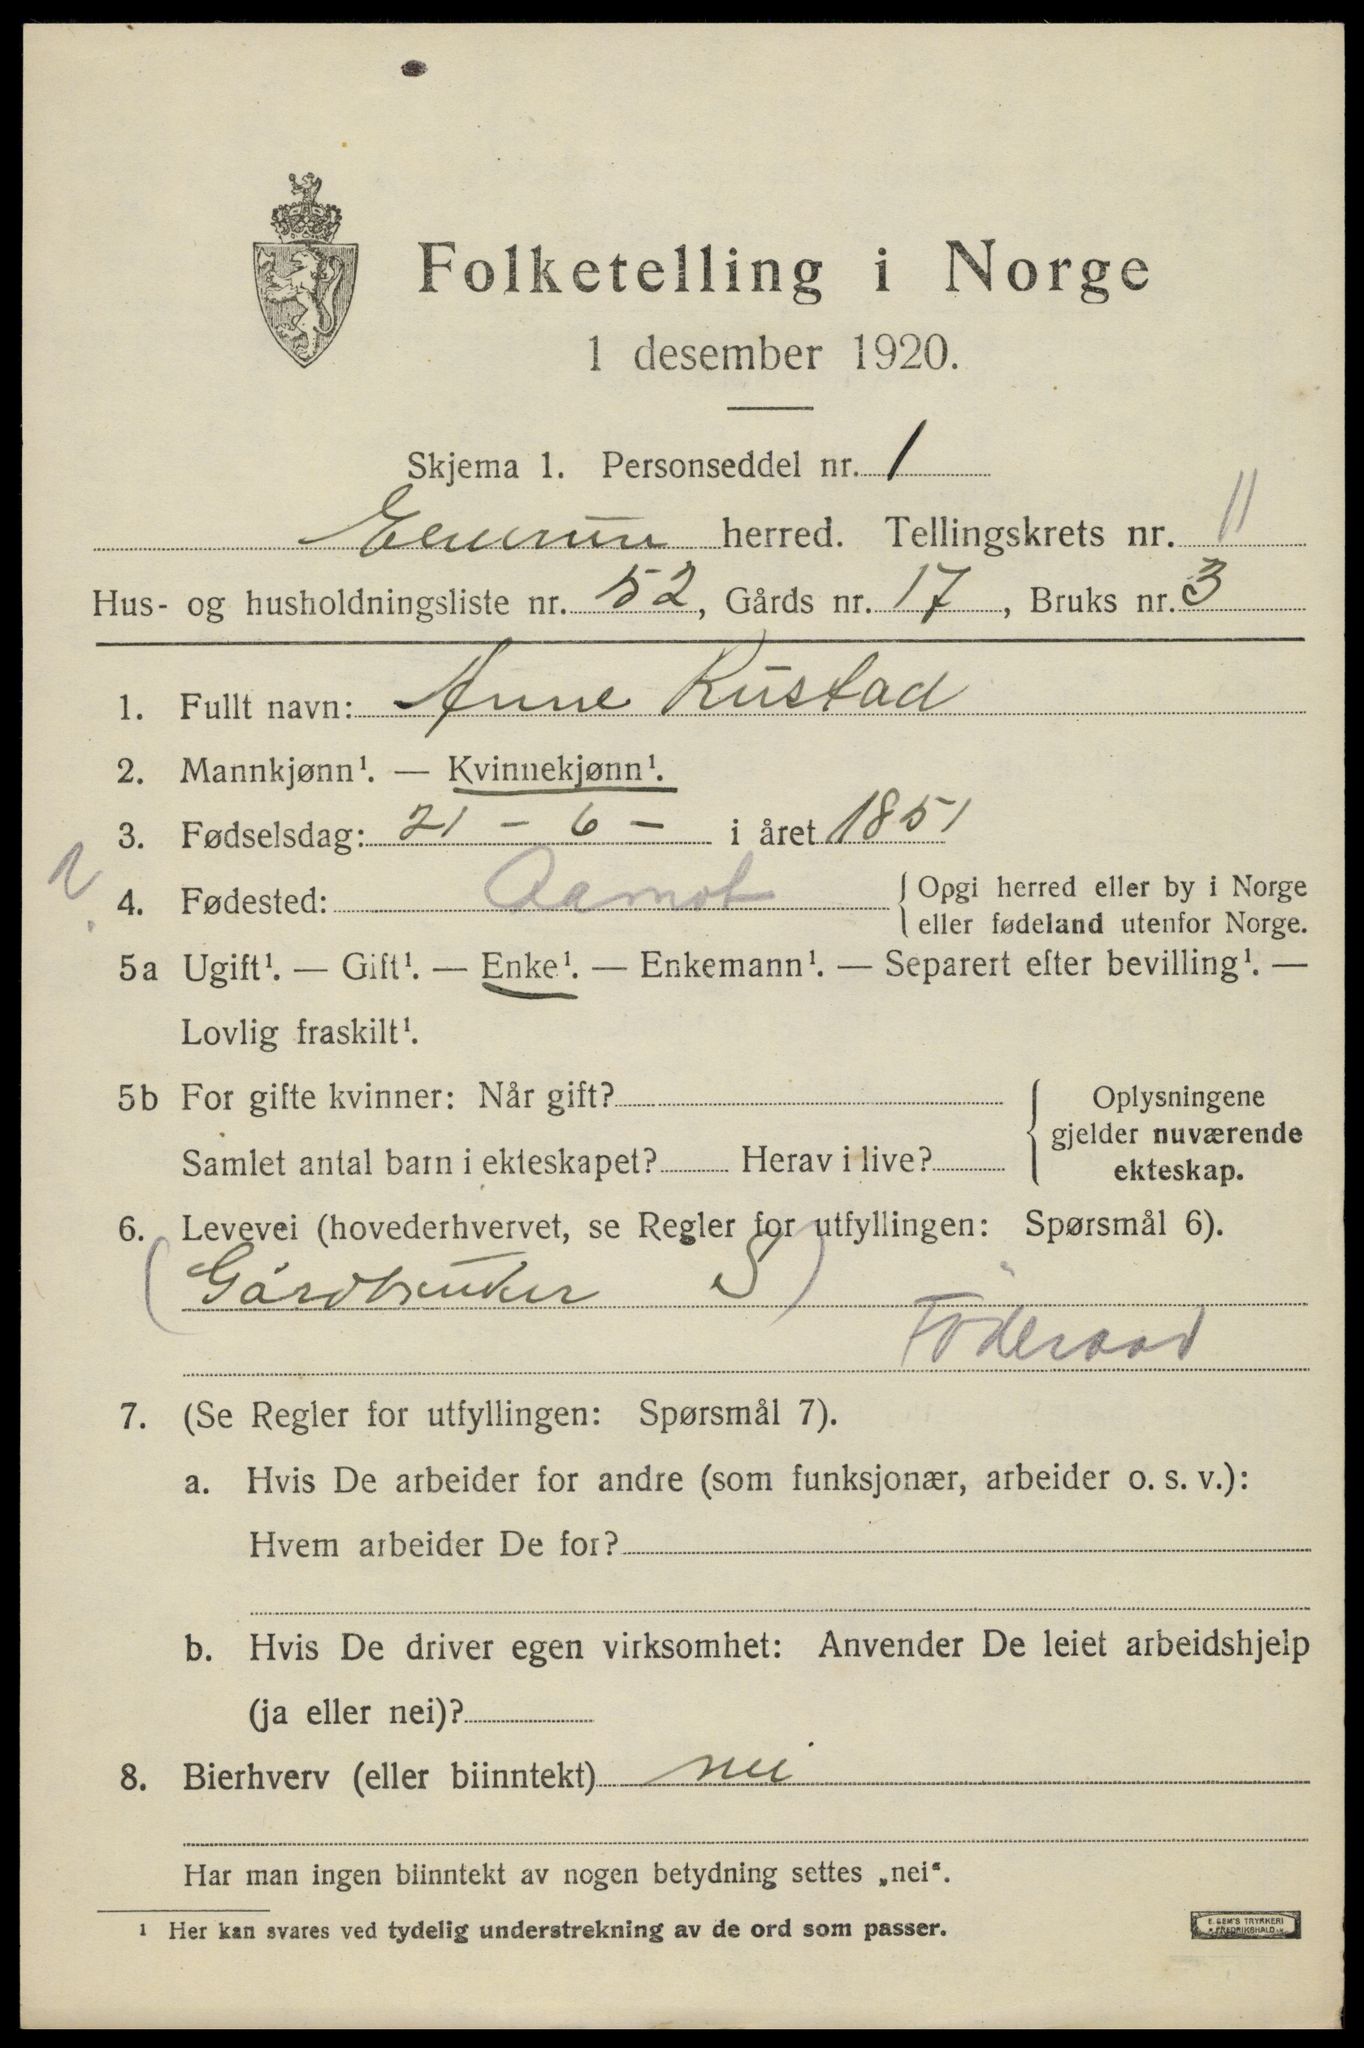 Folketelling i Norge
1 desember 1920.
Skjema 1. Personseddel nr. 1
Elverum herred. Tellingskrets nr. 11
Hus- og husholdningsliste nr. 52, Gårds nr. 17, Bruks nr. 3
1. Fullt navn: Anne Rustad
2. Mannkjønn¹. — Kvinnekjønn¹.
3. Fødselsdag: 21 - 6 - i året 1851
4. Fødested: Aamot { Opgi herred eller by i Norge
eller fødeland utenfor Norge.
5a Ugift¹. — Gift¹. — Enke¹. — Enkemann¹. — Separert efter bevilling¹. —
Lovlig fraskilt¹.
5b For gifte kvinner: Når gift? Oplysningene
gjelder nuværende
Samlet antal barn i ekteskapet? Herav i live? ekteskap.
6. Levevei (hovederhvervet, se Regler for utfyllingen: Spørsmål 6).
(Gårdbruker S)
Föderaad
7. (Se Regler for utfyllingen: Spørsmål 7).
a. Hvis De arbeider for andre (som funksjonær, arbeider o. s. v.):
Hvem arbeider De for?
b. Hvis De driver egen virksomhet: Anvender De leiet arbeidshjelp
(ja eller nei)?
8. Bierhverv (eller biinntekt) nei
Har man ingen biinntekt av nogen betydning settes „nei“.
¹ Her kan svares ved tydelig understrekning av de ord som passer.
E. SEM'S TRYKKERI
FREDRIKSHALD